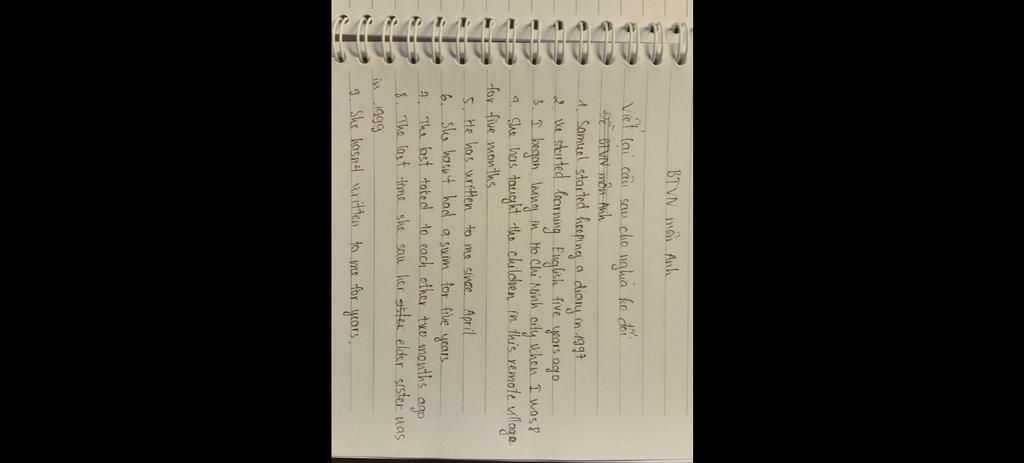 BTVN môn Anh
Viết lại câu sau cho nghĩa ko đổi
Đề BTVN môn Anh
1. Samuel started keeping a diary in 1997
2. We started learning English five years ago
3. I began living in Ho Chi Minh city when I was 8
4. She has taught the children in this remote village
for five months
5. He has written to me since April
6. She hasn't had a swim for five years
7. The last taked to each other two months ago
8. The last time she saw her sister elder sister was
in 1999
9. She hasn't written to me for years.